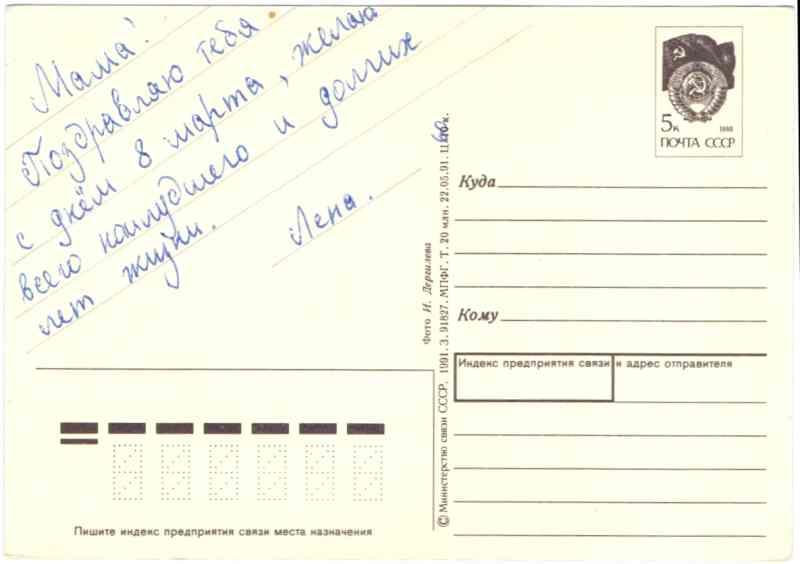 Мама!
Поздравляю тебя
с днём 8 марта, желаю
всего наилучшего и долгих
лет жизни.
Лена.
5к 1988
ПОЧТА СССР
Куда
Кому
Индекс предприятия связи и адрес отправителя
Фото И. Дергилева
© Министерство связи СССР. 1991. З. 91827. МПФГ. Т. 20 млн. 22.05.91. Ц. к.
Пишите индекс предприятия связи места назначения